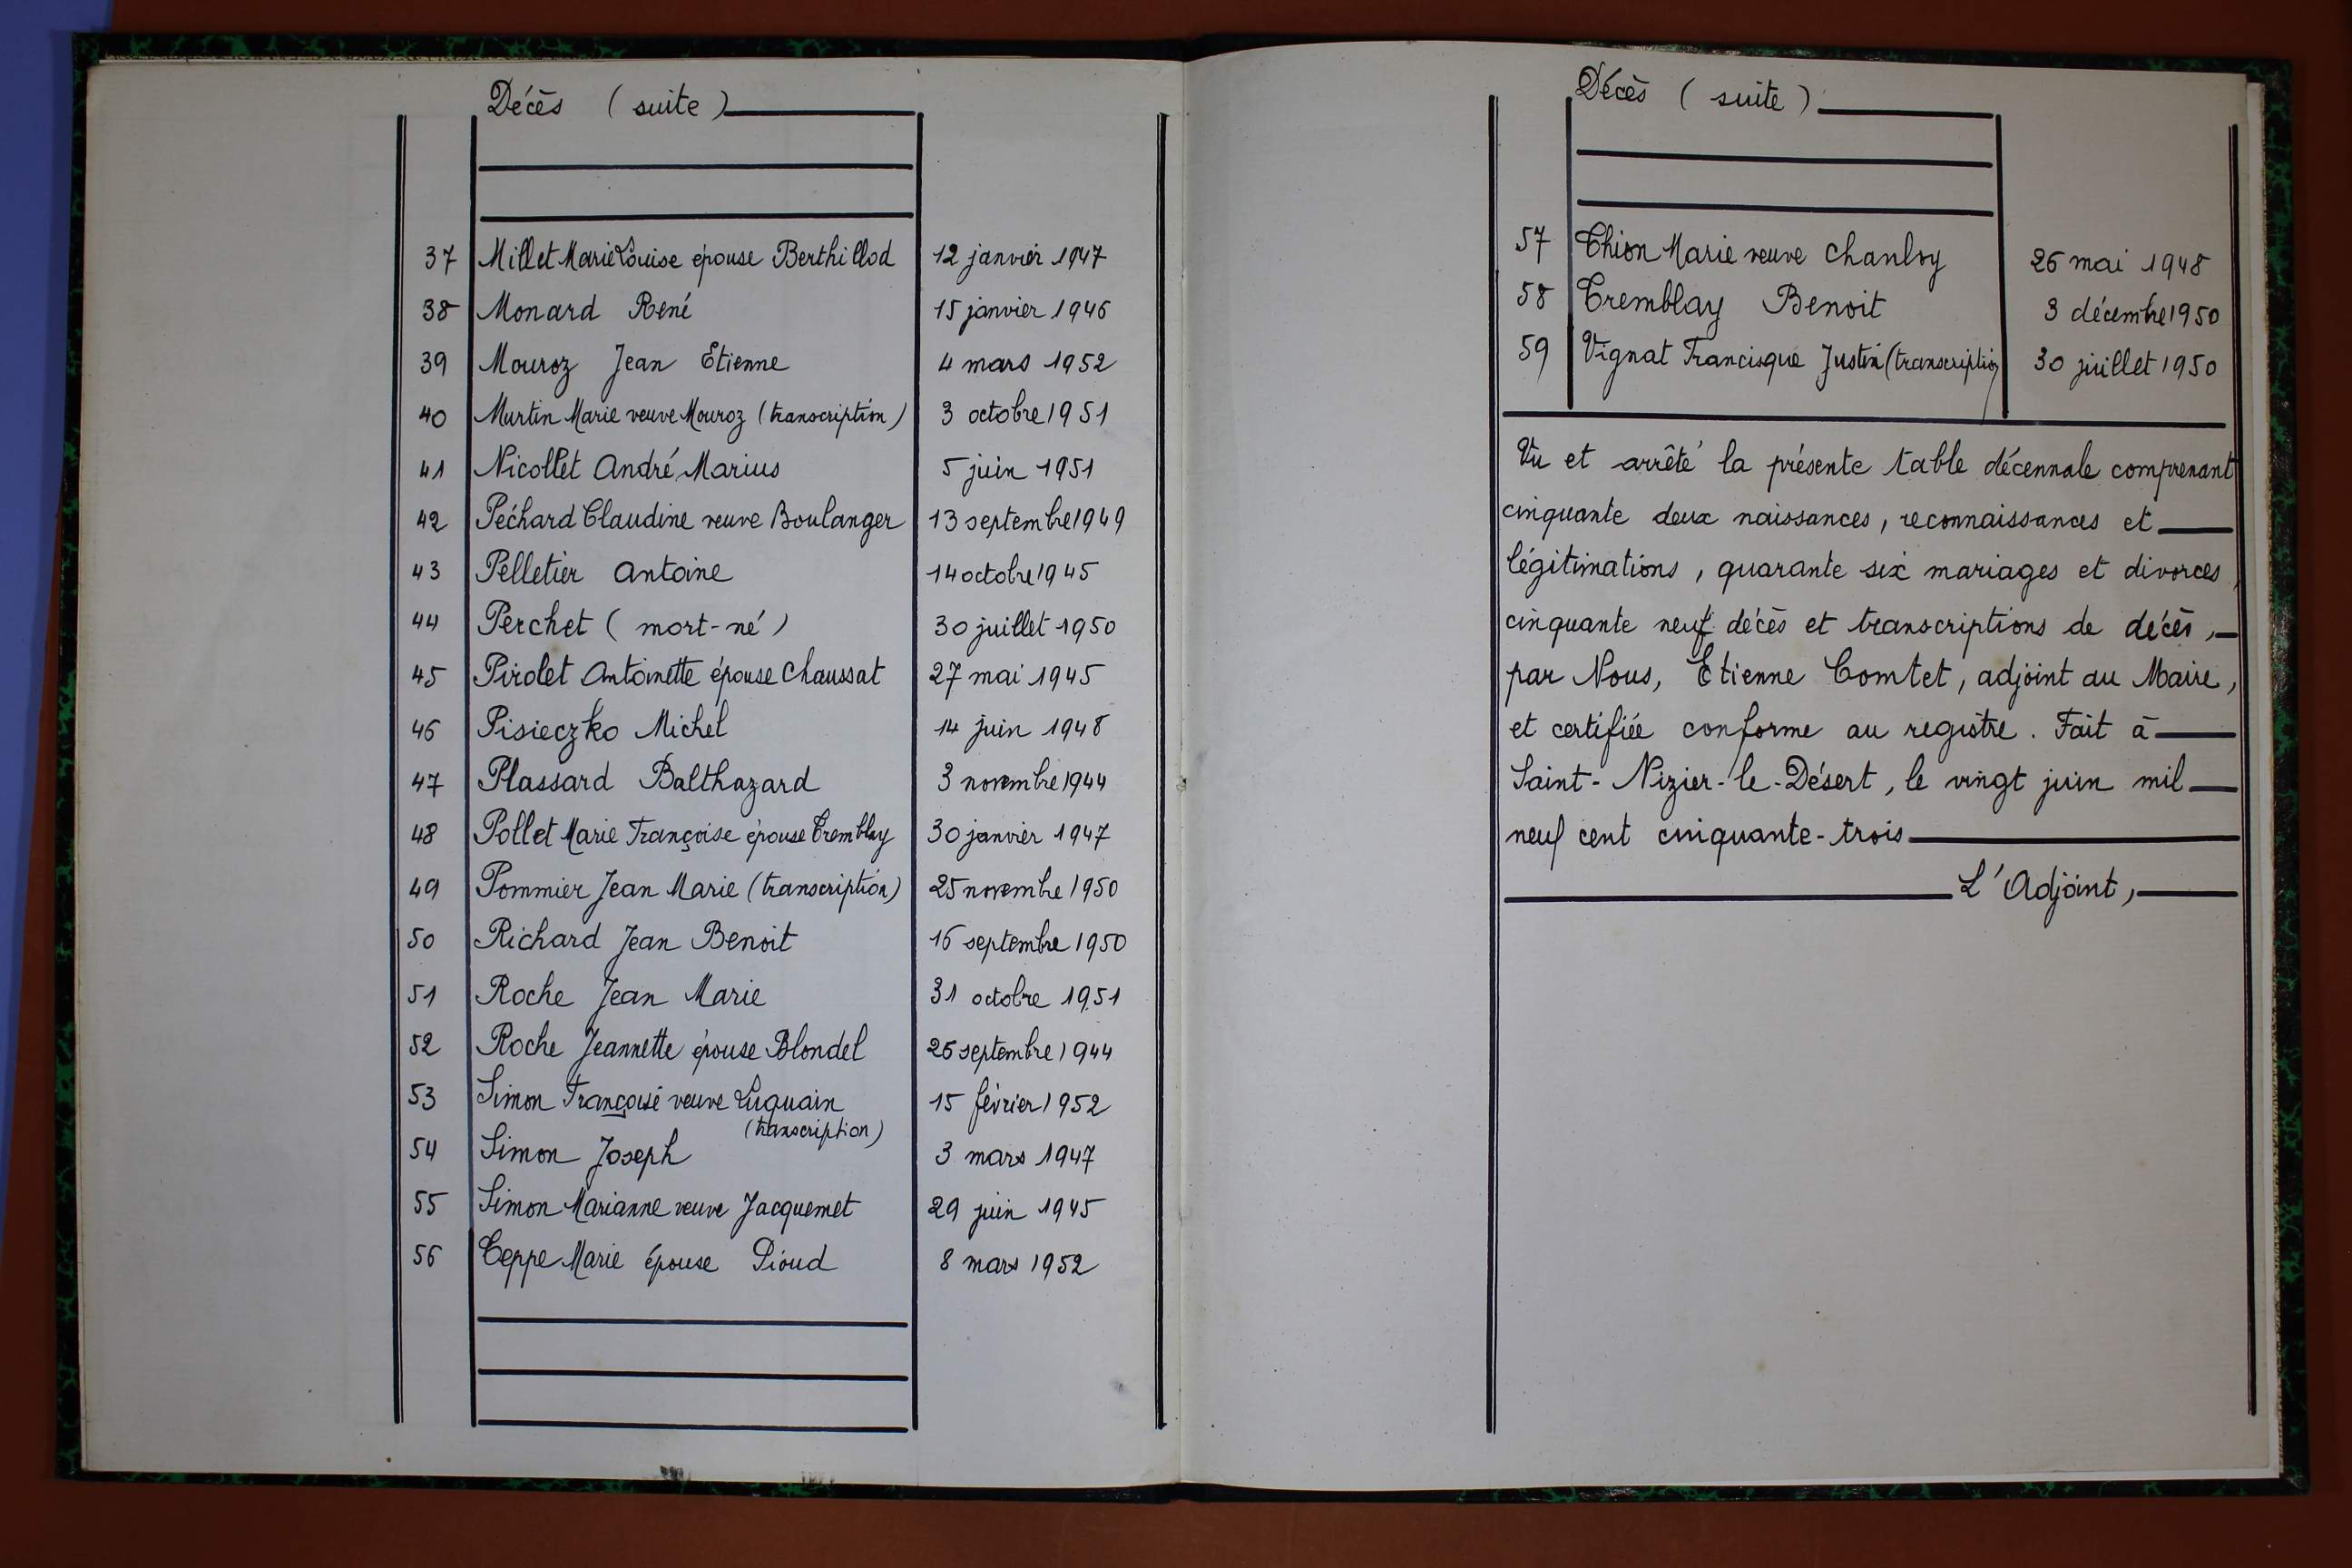 Décès (suite)
37 Millet Marie Louise épouse Berthillod 12 janvier 1947
38 Monard René 15 janvier 1946
39 Mouroz Jean Etienne 4 mars 1952
40 Murtin Marie veuve Mouroz (transcription) 3 octobre 1951
41 Nicollet André Marius 5 juin 1951
42 Péchard Claudine veuve Boulanger 13 septembre 1949
43 Pelletier Antoine 14 octobre 1945
44 Perchet (mort-né) 30 juillet 1950
45 Pirolet Antoinette épouse Chaussat 27 mai 1945
46 Pisieczko Michel 14 juin 1948
47 Plassard Balthazard 3 novembre 1944
48 Pollet Marie Françoise épouse Tremblay 30 janvier 1947
49 Pommier Jean Marie (transcription) 25 novembre 1950
50 Richard Jean Benoit 16 septembre 1950
51 Roche Jean Marie 31 octobre 1951
52 Roche Jeannette épouse Blondel 26 septembre 1944
53 Simon Françoise veuve Luquain 15 février 1952
(transcription)
54 Simon Joseph 3 mars 1947
55 Simon Marianne veuve Jacquemet 29 juin 1945
56 Teppe Marie épouse Pioud 8 mars 1952
Décès (suite)
57 Thion Marie veuve 26 mai 1948
58 Tremblay Benoit 3 décembre 1950
59 Vignat Francisque Justin (transcription) 30 juillet 1950
Vu et arrêté la présente table décennale comprenant
cinquante deux naissances, reconnaissances et
légitimations, quarante six mariages et divorces,
cinquante neuf décès et transcriptions de décès,
par Nous, Etienne Comtet, adjoint au Maire,
et certifiée conforme au registre. Fait à
Saint-Nizier-le-Désert, le vingt juin mil
neuf cent cinquante-trois
L'Adjoint,